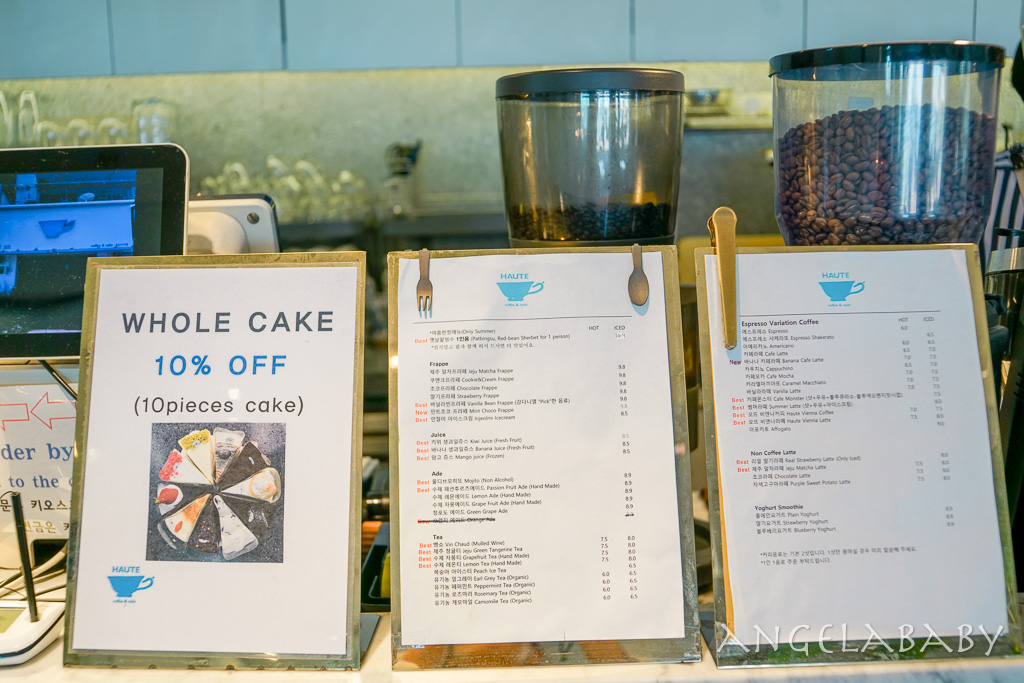 WHOLE CAKE
10% OFF
(10pieces cake)
HAUTE
coffee & cake
der by
to the
HAUTE
coffee & cake
HOT ICED
*여름한정메뉴(Only Summer)
Best 옛날팥빙수 1인용 (Patbingsu, Red-bean Sherbet for 1 person)
Frappe
제주 말차프라페 Jeju Matcha Frappe 9.8
쿠앤크프라페 Cookie&Cream Frappe 9.8
초코프라페 Chocolate Frappe 9.8
딸기프라페 Strawberry Frappe 9.8
Best 바닐라빈프라페 Vanilla Bean Frappe (강다니엘 "Pick"한 음료) 9.8
New 민트초코 프라페 Mint Choco Frappe
Best 인절미 아이스크림 Injeolmi Icecream 8.5
Juice
Best 키위 생과일쥬스 Kiwi Juice (Fresh Fruit)
Best 바나나 생과일쥬스 Banana Juice (Fresh Fruit) 8.5
Best 망고 쥬스 Mango Juice (Frozen) 8.5
Ade
Best 몰디브모히토 Mojito (Non Alcohol) 8.9
Best 수제 패션후르츠에이드 Passion Fruit Ade (Hand Made) 8.9
수제 레몬에이드 Lemon Ade (Hand Made) 8.9
수제 자몽에이드 Grape Fruit Ade (Hand Made) 8.9
청포도 에이드 Green Grape Ade 8.9
Orange Ade
Tea
Best 뱅쇼 Vin Chaud (Mulled Wine) 7.5 8.0
Best 제주 청귤티 Jeju Green Tangerine Tea 7.5 8.0
Best 수제 자몽티 Grapefruit Tea (Hand Made) 7.5 8.0
Best 수제 레몬티 Lemon Tea (Hand Made) 7.5 8.0
복숭아 아이스티 Peach Ice Tea 6.5
유기농 얼그레이 Earl Grey Tea (Organic) 6.0 6.5
유기농 페퍼민트 Peppermint Tea (Organic) 6.0 6.5
유기농 로즈마리 Rosemary Tea (Organic) 6.0 6.5
유기농 캐모마일 Camomile Tea (Organic) 6.0 6.5
HAUTE
coffee & cake
HOT ICED
Espresso Variation Coffee
에스프레소 Espresso 6.0
에스프레소 샤케라또 Espresso Shakerato
아메리카노 Americano
카페라떼 Cafe Latte
New 바나나 카페라떼 Banana Cafe Latte
카푸치노 Cappuchino
카페모카 Cafe Mocha
카라멜마끼아또 Caramel Macchiato
바닐라라떼 Vanilla Latte
Best 카페몬스터 Cafe Monster
Best 썸머라떼 Summer Latte (샷+우유+아이스크림)
Best 오뜨 비엔나커피 Haute Vienna Coffee
Best 오뜨 비엔나라떼 Haute Vienna Latte
아포카토 Affogato
Non Coffee Latte
Best 리얼 딸기라떼 Real Strawberry Latte (Only Iced)
Best 제주 말차라떼 Jeju Matcha Latte
초코라떼 Chocolate Latte
자색고구마라떼 Purple Sweet Potato Latte
Yoghurt Smoothie
플레인요거트 Plain Yoghurt
딸기요거트 Strawberry Yoghurt
블루베리요거트 Blueberry Yoghurt
*커피음료는 기본 2샷입니다. 1샷만 원하실 경우 미리 말씀해 주세요.
*1인 1음료 주문 부탁드립니다.
ANGELABABY